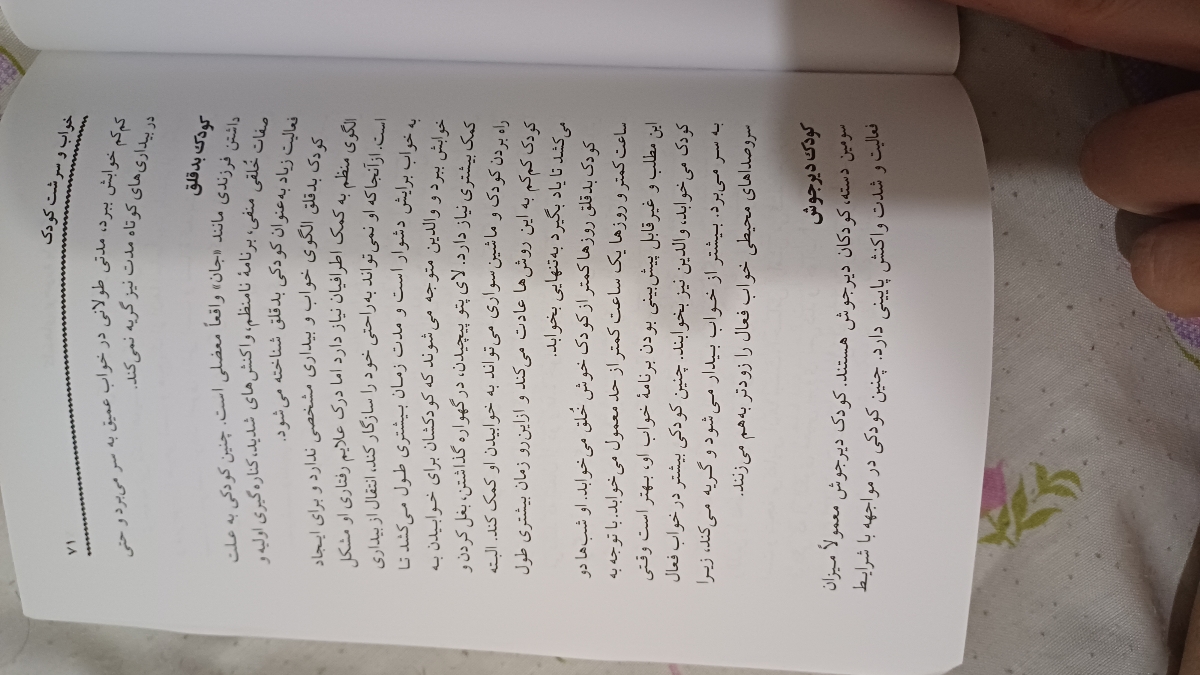 خواب و سرشت کودک
۷۱
کم‌کم خوابش ببرد، مدتی طولانی در خواب عمیق به سر می‌برد و حتی
در بیداری‌های کوتاه مدت نیز گریه نمی‌کند.
کودک بدقلق
داشتن فرزندی مانند «جان» واقعاً معضلی است. چنین کودکی به علت
صفات خُلقی منفی، برنامهٔ نامنظم، واکنش‌های شدید، کناره‌گیری اولیه و
فعالیت زیاد به‌عنوان کودکی بدقلق شناخته می‌شود.
کودک بدقلق الگوی خواب و بیداری مشخصی ندارد و برای ایجاد
الگوی منظم به کمک اطرافیان نیاز دارد اما درک علایم رفتاری او مشکل
است. ازآنجاکه او نمی‌تواند به‌راحتی خود را سازگار کند، انتقال از بیداری
به خواب برایش دشوار است و مدت زمان بیشتری طول می‌کشد تا
خوابش ببرد و والدین متوجه می‌شوند که کودکشان برای خوابیدن به
کمک بیشتری نیاز دارد. لای پتو پیچیدن، در گهواره گذاشتن، بغل کردن و
راه بردن کودک و ماشین‌سواری می‌تواند به خوابیدن او کمک کند. البته
کودک کم‌کم به این روش‌ها عادت می‌کند و ازاین‌رو زمان بیشتری طول
می‌کشد تا یاد بگیرد به‌تنهایی بخوابد.
کودک بدقلق روزها کمتر از کودک خوش خُلق می‌خوابد. او شب‌ها دو
ساعت کمتر و روزها یک ساعت کمتر از حد معمول می‌خوابد. با توجه به
این مطلب و غیرقابل پیش‌بینی بودن برنامهٔ خواب او، بهتر است وقتی
کودک می‌خوابد، والدین نیز بخوابند. چنین کودکی بیشتر در خواب فعال
به سر می‌برد. بیشتر از خواب بیدار می‌شود و گریه می‌کند، زیرا
سروصداهای محیطی خواب فعال را زودتر به‌هم می‌زنند.
کودک دیرجوش
سومین دسته، کودکان دیرجوش هستند. کودک دیرجوش معمولاً میزان
فعالیت و شدت واکنش پایینی دارد. چنین کودکی در مواجهه با شرایط